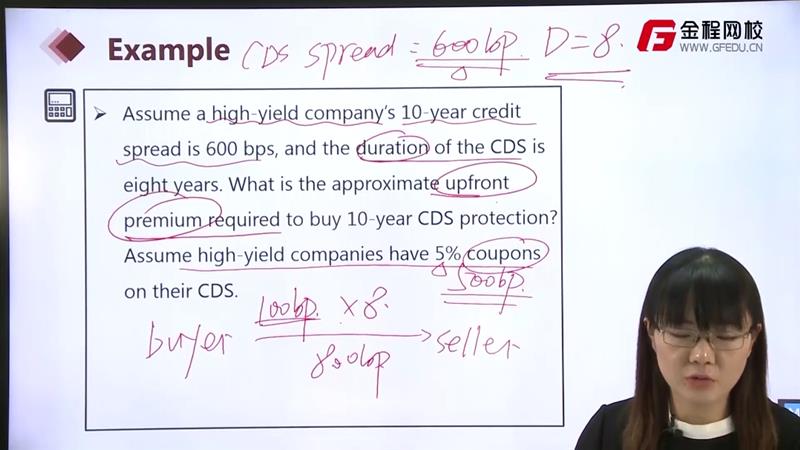 Example CDS spread = 600bp. D = 8.
金程网校
WWW.GFEDU.CN
Assume a high-yield company's 10-year credit
spread is 600 bps, and the duration of the CDS is
eight years. What is the approximate upfront
premium required to buy 10-year CDS protection?
Assume high-yield companies have 5% coupons
on their CDS.
500bp.
100bp. × 8.
buyer seller
800bp